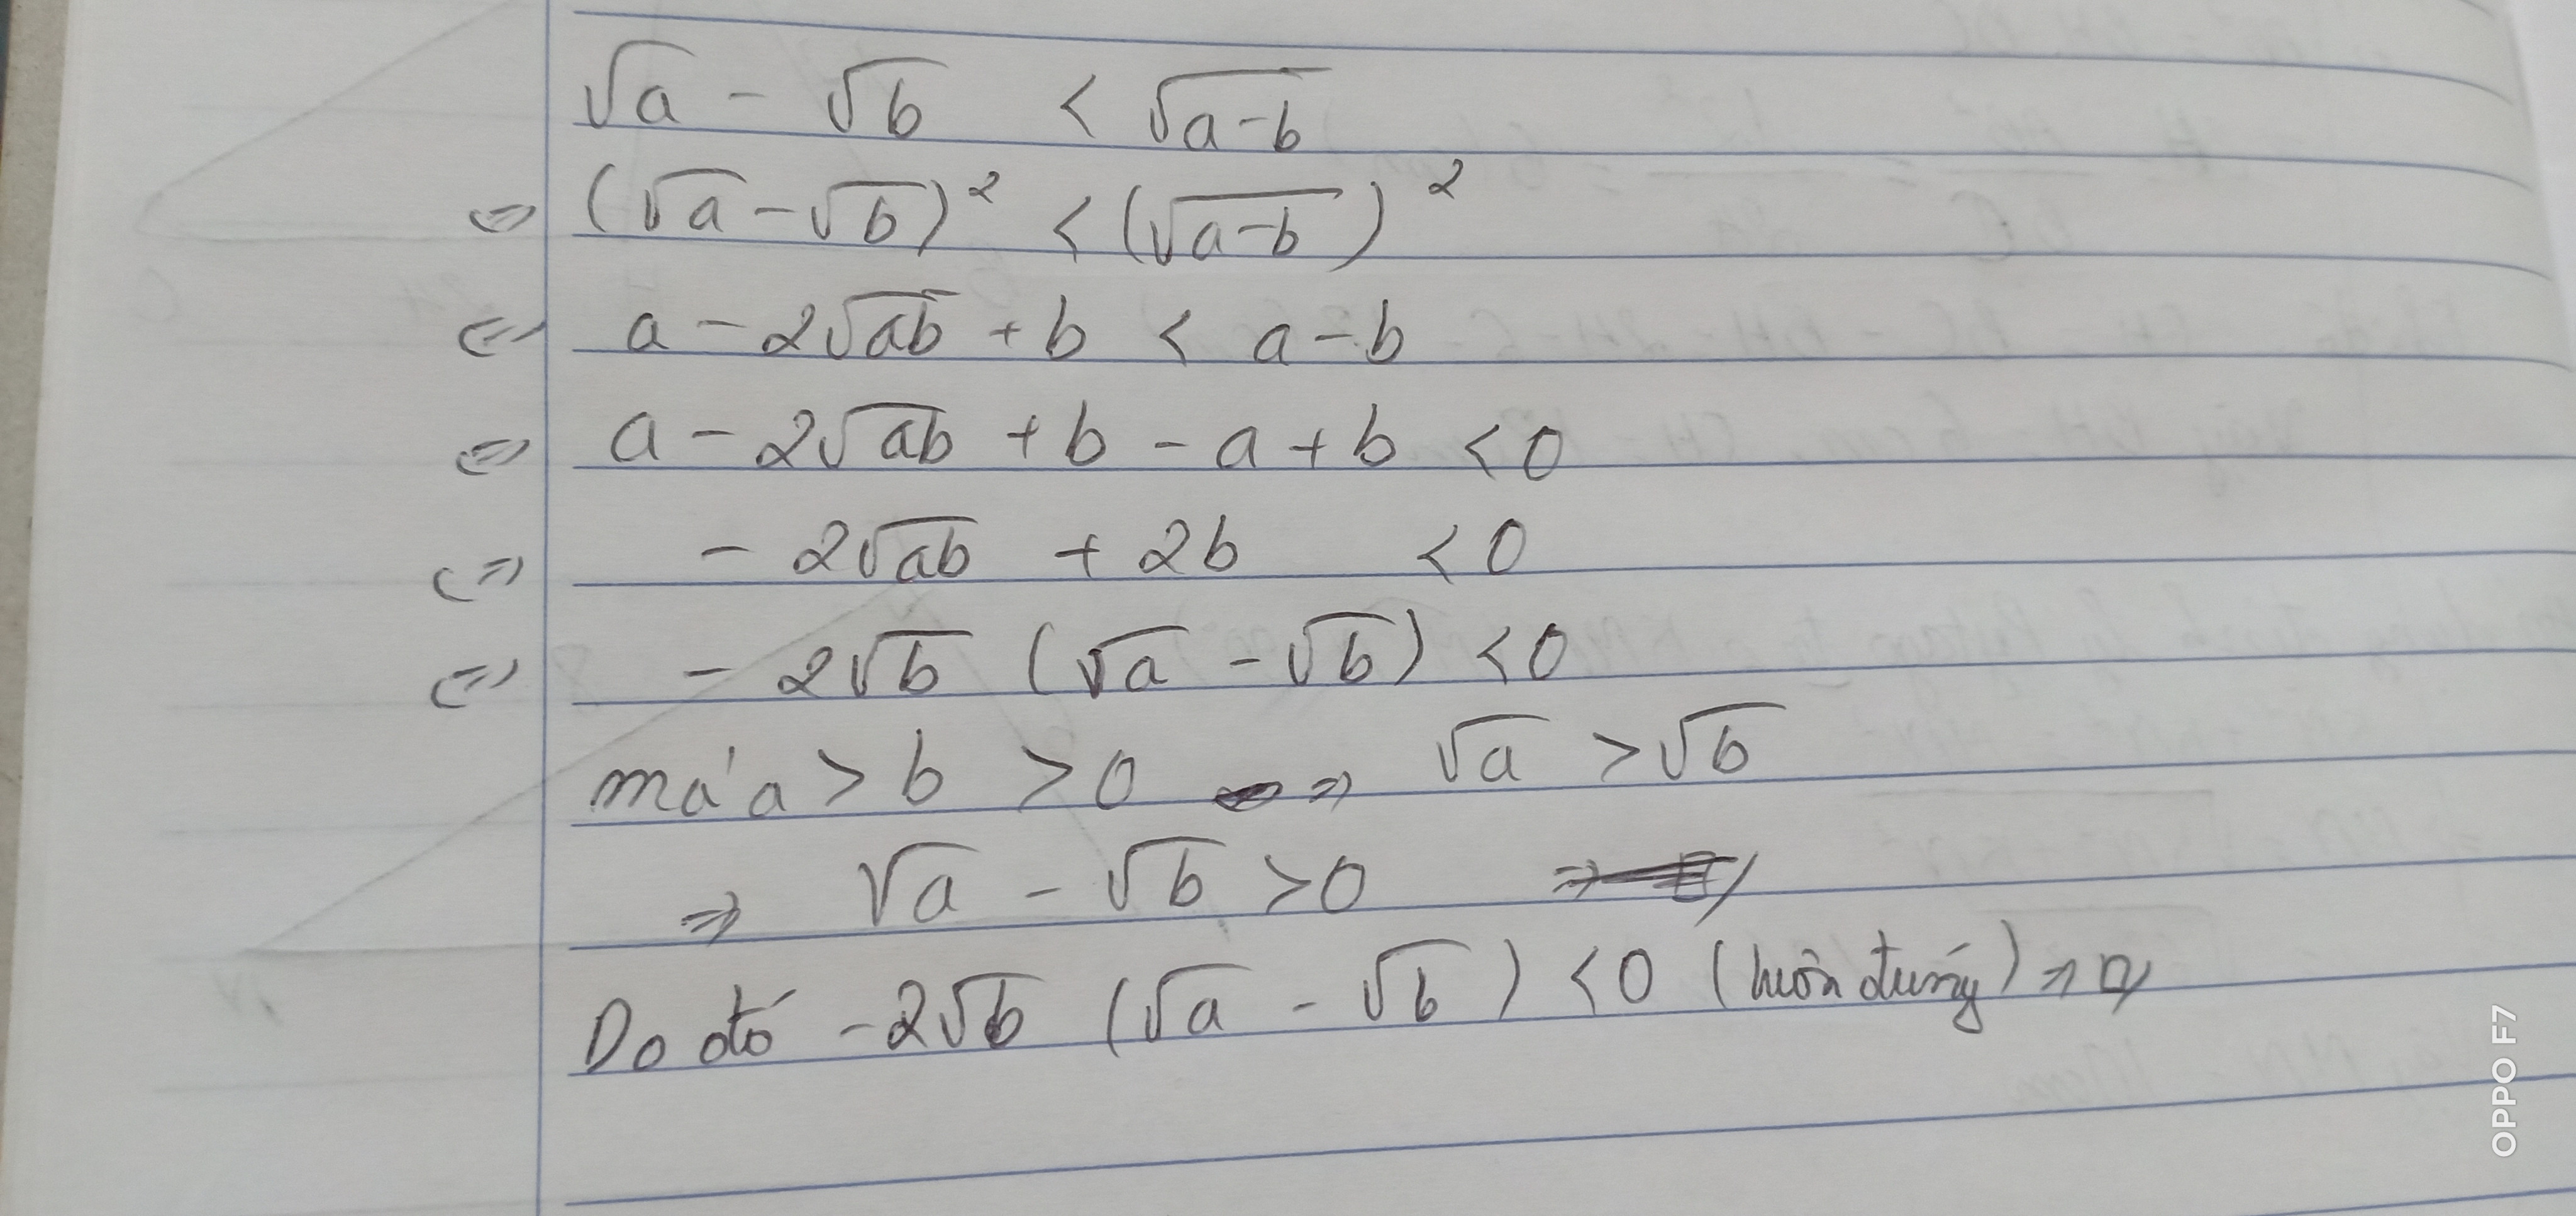 √a - √b < √a-b
⇔ (√a - √b)² < (√a-b)²
⇔ a - 2√ab + b < a - b
⇔ a - 2√ab + b - a + b < 0
⇔ - 2√ab + 2b < 0
⇔ - 2√b (√a - √b) < 0
mà a > b > 0 ⇒ √a > √b
⇒ √a - √b > 0 ⇒
Do đó -2√b (√a - √b) < 0 (luôn đúng) ⇒
OPPO F7